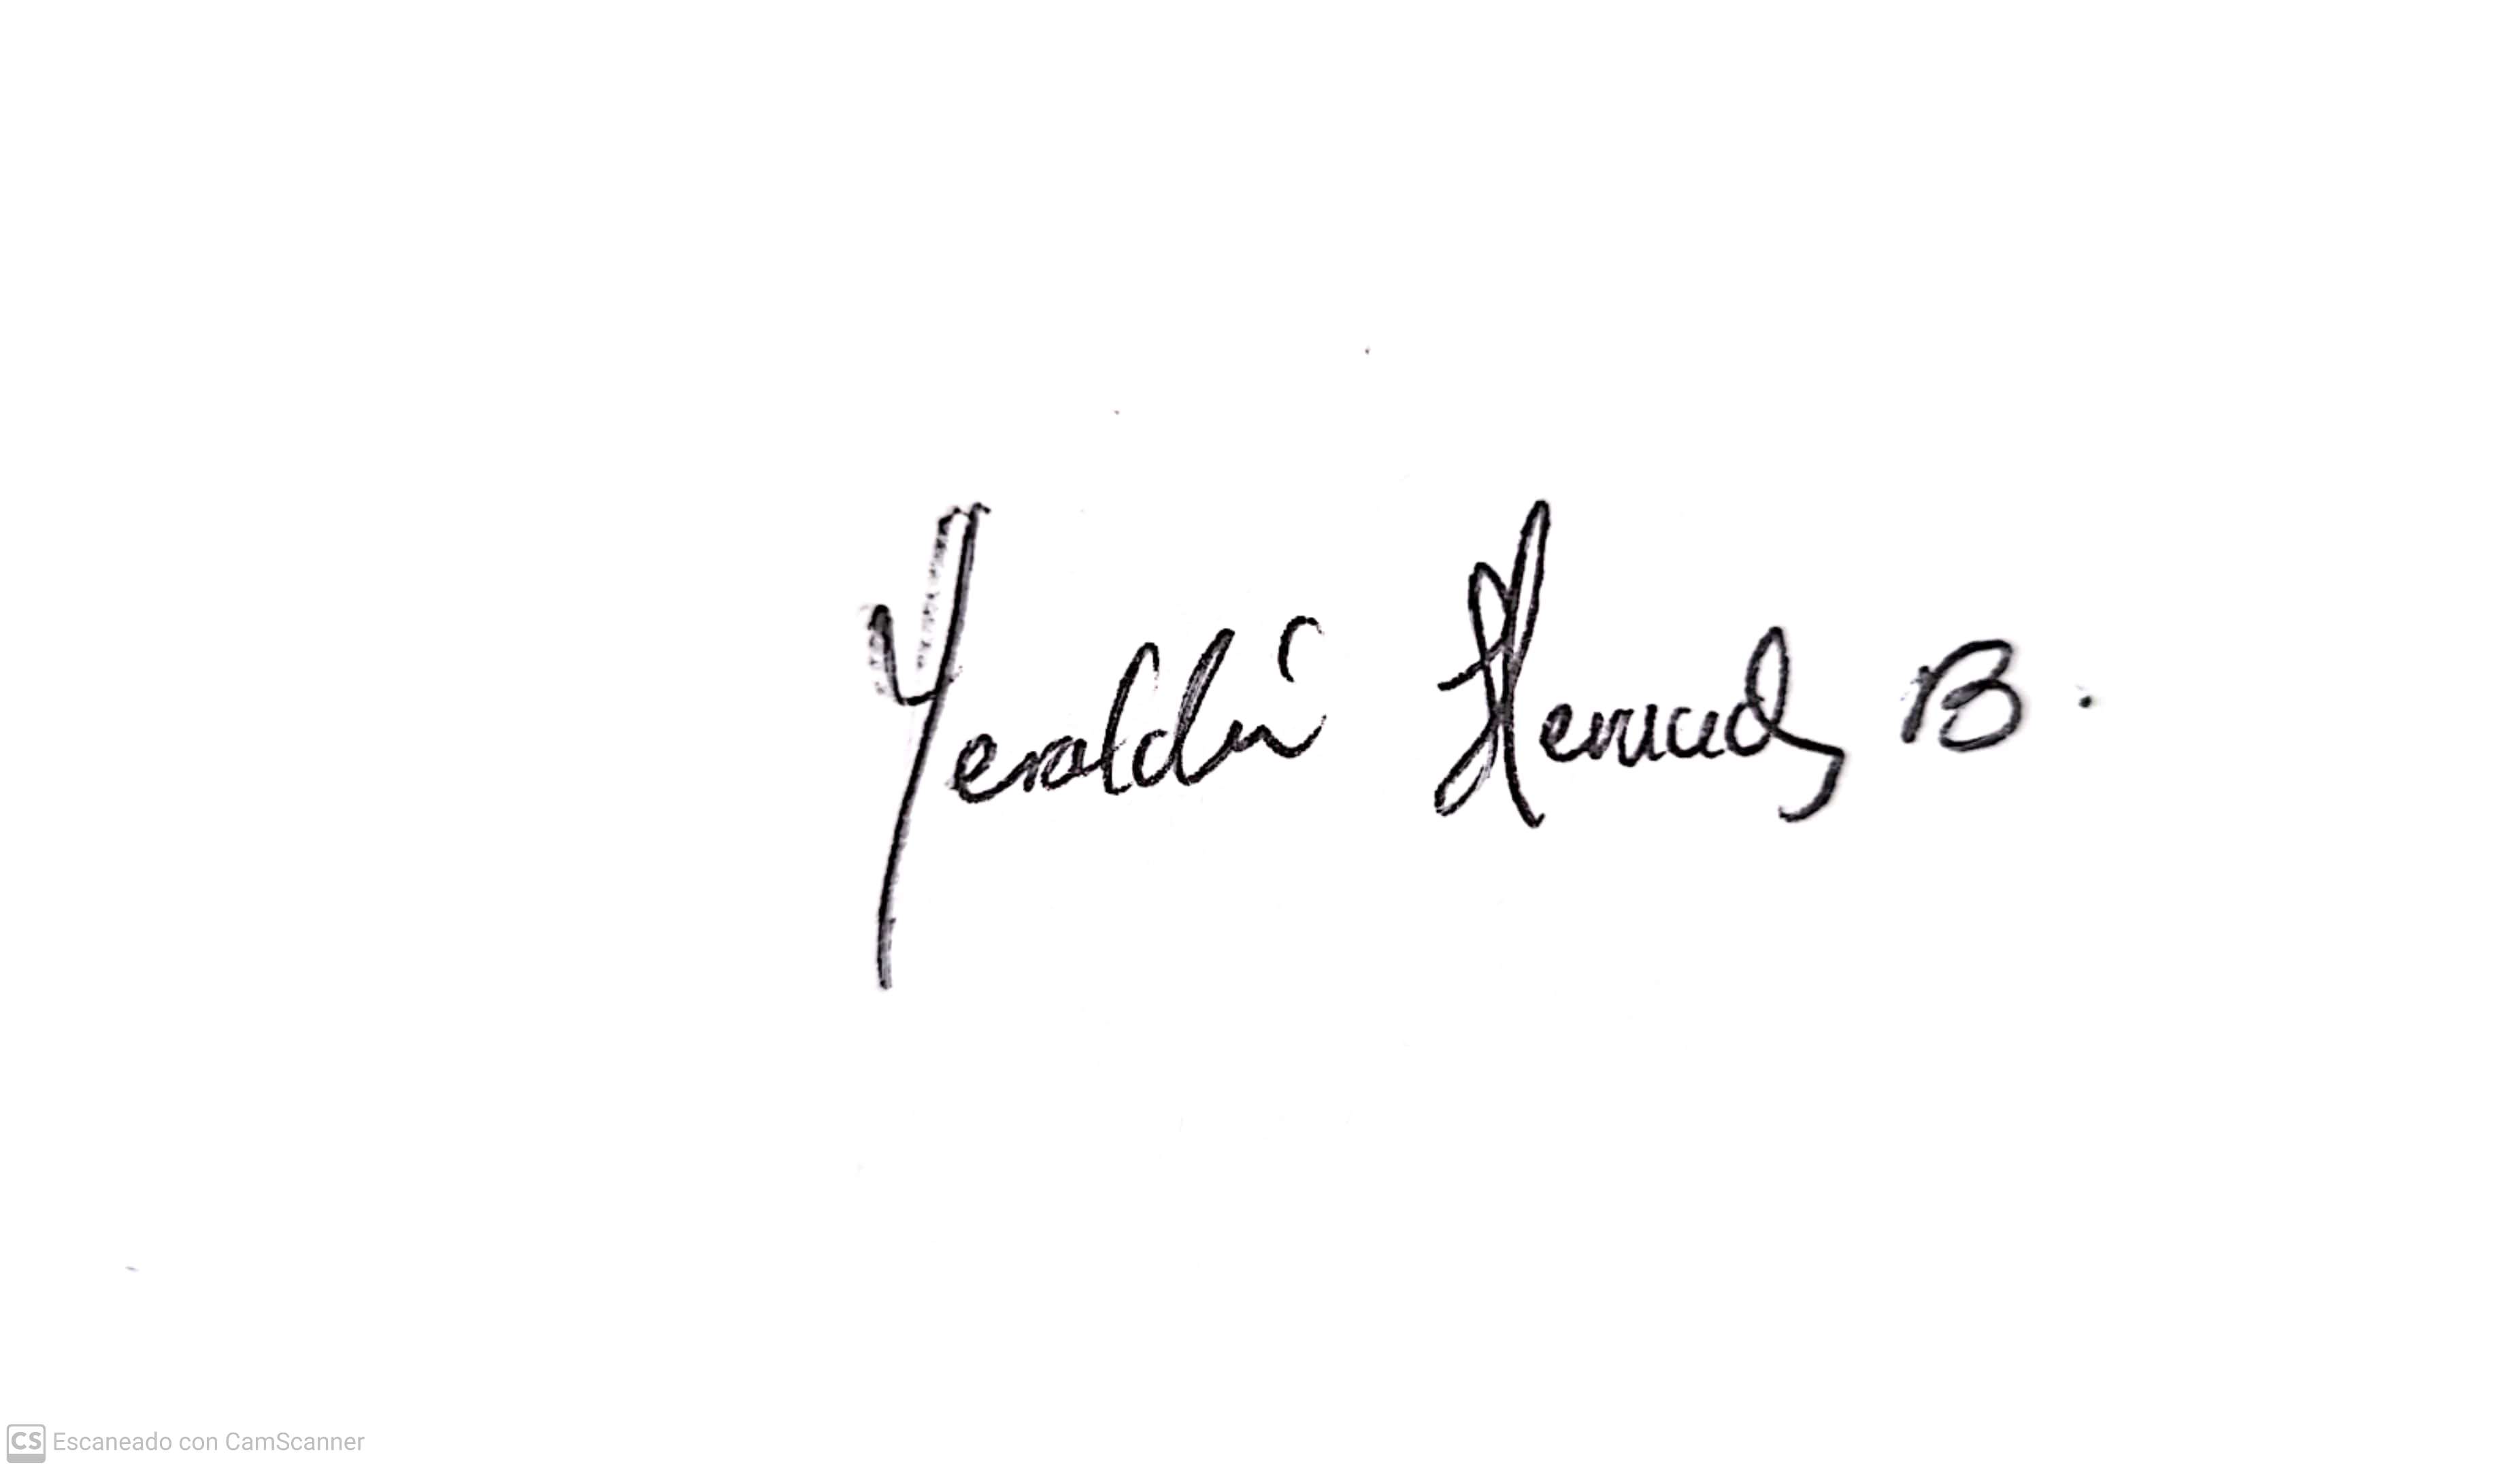 Yeraldin Hernandz B.
Escaneado con CamScanner